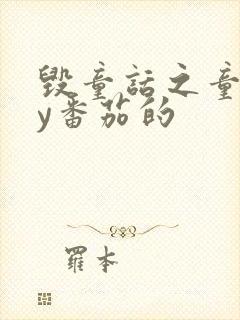 毁童话之童
y番茄的
羅本